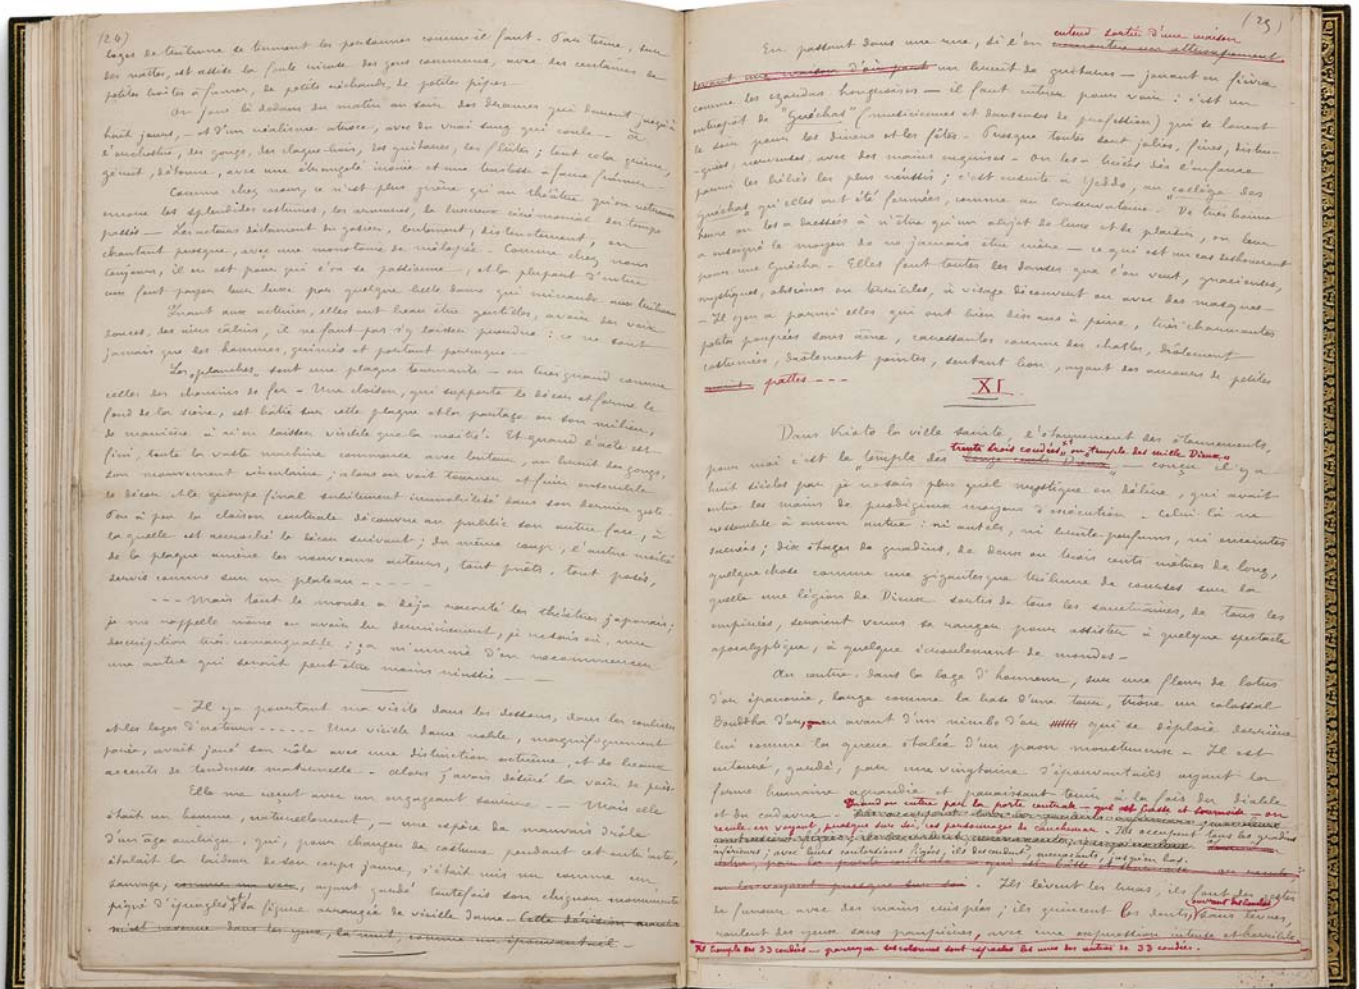 (24)
loges de tribune se tiennent les personnes comme il faut. Par terre, sur
des nattes, est assise la foule rieuse des gens communs, avec des centaines de
petites boîtes à fumer, de petits réchauds, de petites pipes.
On joue là dedans du matin au soir des drames qui durent jusqu'à
huit jours, — et d'un réalisme atroce, avec du vrai sang qui coule. — à
l'orchestre, des gongs, des claque-bois, des guitares, des flûtes ; tout cela grince,
gémit, détonne, avec une étrangeté inouïe et une tristesse à faire frémir.
Comme chez nous, ce n'est plus guère qu'au théâtre qu'on retrouve
encore les splendides costumes, les armures, le luxueux cérémonial des temps
passés — Les acteurs déclament du gosier, lentement, distinctement, en
chantant presque, avec une monotonie de mélopée. Comme chez nous
toujours, il en est pour qui l'on se passionne, et la plupart d'entre
eux font payer leur luxe par quelque belle dame qui minaude aux tribunes
Quant aux actrices, elles ont beau être gentilles, avoir des voix
douces, des airs câlins, il ne faut pas s'y laisser prendre : ce ne sont
jamais que des hommes, grimés et portant perruque —
Les „planches" sont une plaque tournante — en très grand comme
celles des chemins de fer. — Une cloison, qui supporte le décor et forme le
fond de la scène, est bâtie sur cette plaque et la partage en son milieu,
de manière à n'en laisser visible que la moitié. Et quand l'acte est
fini, toute la vaste machine commence avec lenteur, au bruit des gongs,
son mouvement circulaire ; alors on voit tourner et fuir ensemble
le décor et le groupe final subitement immobilisé dans son dernier geste.
Peu à peu la cloison centrale découvre au public son autre face, à
laquelle est accroché le décor suivant ; du même coup, l'autre moitié
de la plaque amène les nouveaux acteurs, tout prêts, tout posés,
servis comme sur un plateau - - - - -
- - - Mais tout le monde a déjà raconté les théâtres japonais ;
je me rappelle même en avoir lu dernièrement, je ne sais où, une
description très remarquable ; ça m'ennuie d'en recommencer
une autre qui serait peut-être moins réussie — —
— Il y a pourtant ma visite dans les dessous, dans les coulisses
et les loges d'acteurs - - - - - - Une vieille dame noble, magnifiquement
parée, avait joué son rôle avec une distinction extrême, et de beaux
accents de tendresse maternelle. — alors j'avais désiré la voir de près.
Elle me reçut avec un engageant sourire — — Mais elle
était un homme, naturellement, — une espèce de mauvais drôle
d'un âge ambigu, qui, pour changer de costume pendant cet entr'acte,
étalait la laideur de son corps jaune, s'était mis nu comme un
sauvage, comme un ver, ayant gardé toutefois son chignon monumental
piqué d'épingles et sa figure arrangée de vieille dame — Cette dérision
m'est revenue dans les yeux, la nuit, comme un épouvantail —
(25)
entend sortir d'une maison
En passant dans une rue, si l'on rencontre un attroupement
devant une maison un bruit de guitares — jouant en fièvre
comme les czardas hongroises — il faut entrer pour voir : c'est un
entrepôt de "Guéchas" (musiciennes et danseuses de profession) qui se louent
le soir pour les dîners et les fêtes. Presque toutes sont jolies, fines, distin-
-guées, nerveuses, avec des mains exquises. On les a triées dès l'enfance
parmi les bébés les plus réussis ; c'est ensuite à Yeddo, au „collège des
guéchas" qu'elles ont été formées, comme au Conservatoire. De très bonne
heure on les a dressées à n'être qu'un objet de luxe et de plaisir, on leur
a enseigné le moyen de ne jamais être mère — ce qui est un cas déshonorant
pour une Guécha. Elles font toutes les danses que l'on veut, gracieuses,
mystiques, obscènes ou terribles, à visage découvert ou avec des masques —
— Il y en a parmi elles qui ont bien dix ans à peine, très charmantes
petites poupées sans âme, caressantes comme des chattes, drôlement
costumées, drôlement peintes, sentant bon, ayant des amours de petites
mains pattes - - -
XI
Dans Kioto la ville sainte, l'étonnement des étonnements,
trente trois coudées" ou „temple des mille Dieux"
pour moi c'est le „temple des — conçu il y a
huit siècles par je ne sais plus quel mystique en délire, qui avait
entre les mains de prodigieux moyens d'exécution. Celui-là ne
ressemble à aucun autre : ni autels, ni brûle-parfums, ni enceintes
sacrées ; dix étages de gradins, de deux ou trois cents mètres de long,
quelque chose comme une gigantesque tribune de courses sur la
quelle une légion de Dieux sortis de tous les sanctuaires, de tous les
empyrées, seraient venus se ranger pour assister à quelque spectacle
apocalyptique, à quelque écroulement de mondes —
Au centre, dans la loge d'honneur, sur une fleur de lotus
d'or épanouie, large comme la base d'une tour, trône un colossal
Bouddha d'or, en avant d'un nimbe d'or qui se déploie derrière
lui comme la queue étalée d'un paon monstrueux. — Il est
entouré, gardé, par une vingtaine d'épouvantails ayant la
forme humaine agrandie et paraissant tenir à la fois du diable
et du cadavre —
Quand on entre par la porte centrale — qui est basse et sournoise — on
recule en voyant, presque sur soi, ces personnages de cauchemar. Ils occupent tous les gradins
inférieurs ; avec leurs contorsions figées, ils descendent, menaçants, jusqu'en bas.
en les voyant presque sur soi. Ils lèvent les bras, ils font des gestes
de fureur avec des mains crispées ; ils grincent les dents, ouvrant des bouches sans lèvres,
roulent des yeux sans paupières, avec une expression intense et horrible
Temple des 33 coudées — parceque ses colonnes sont espacées les unes des autres de 33 coudées.